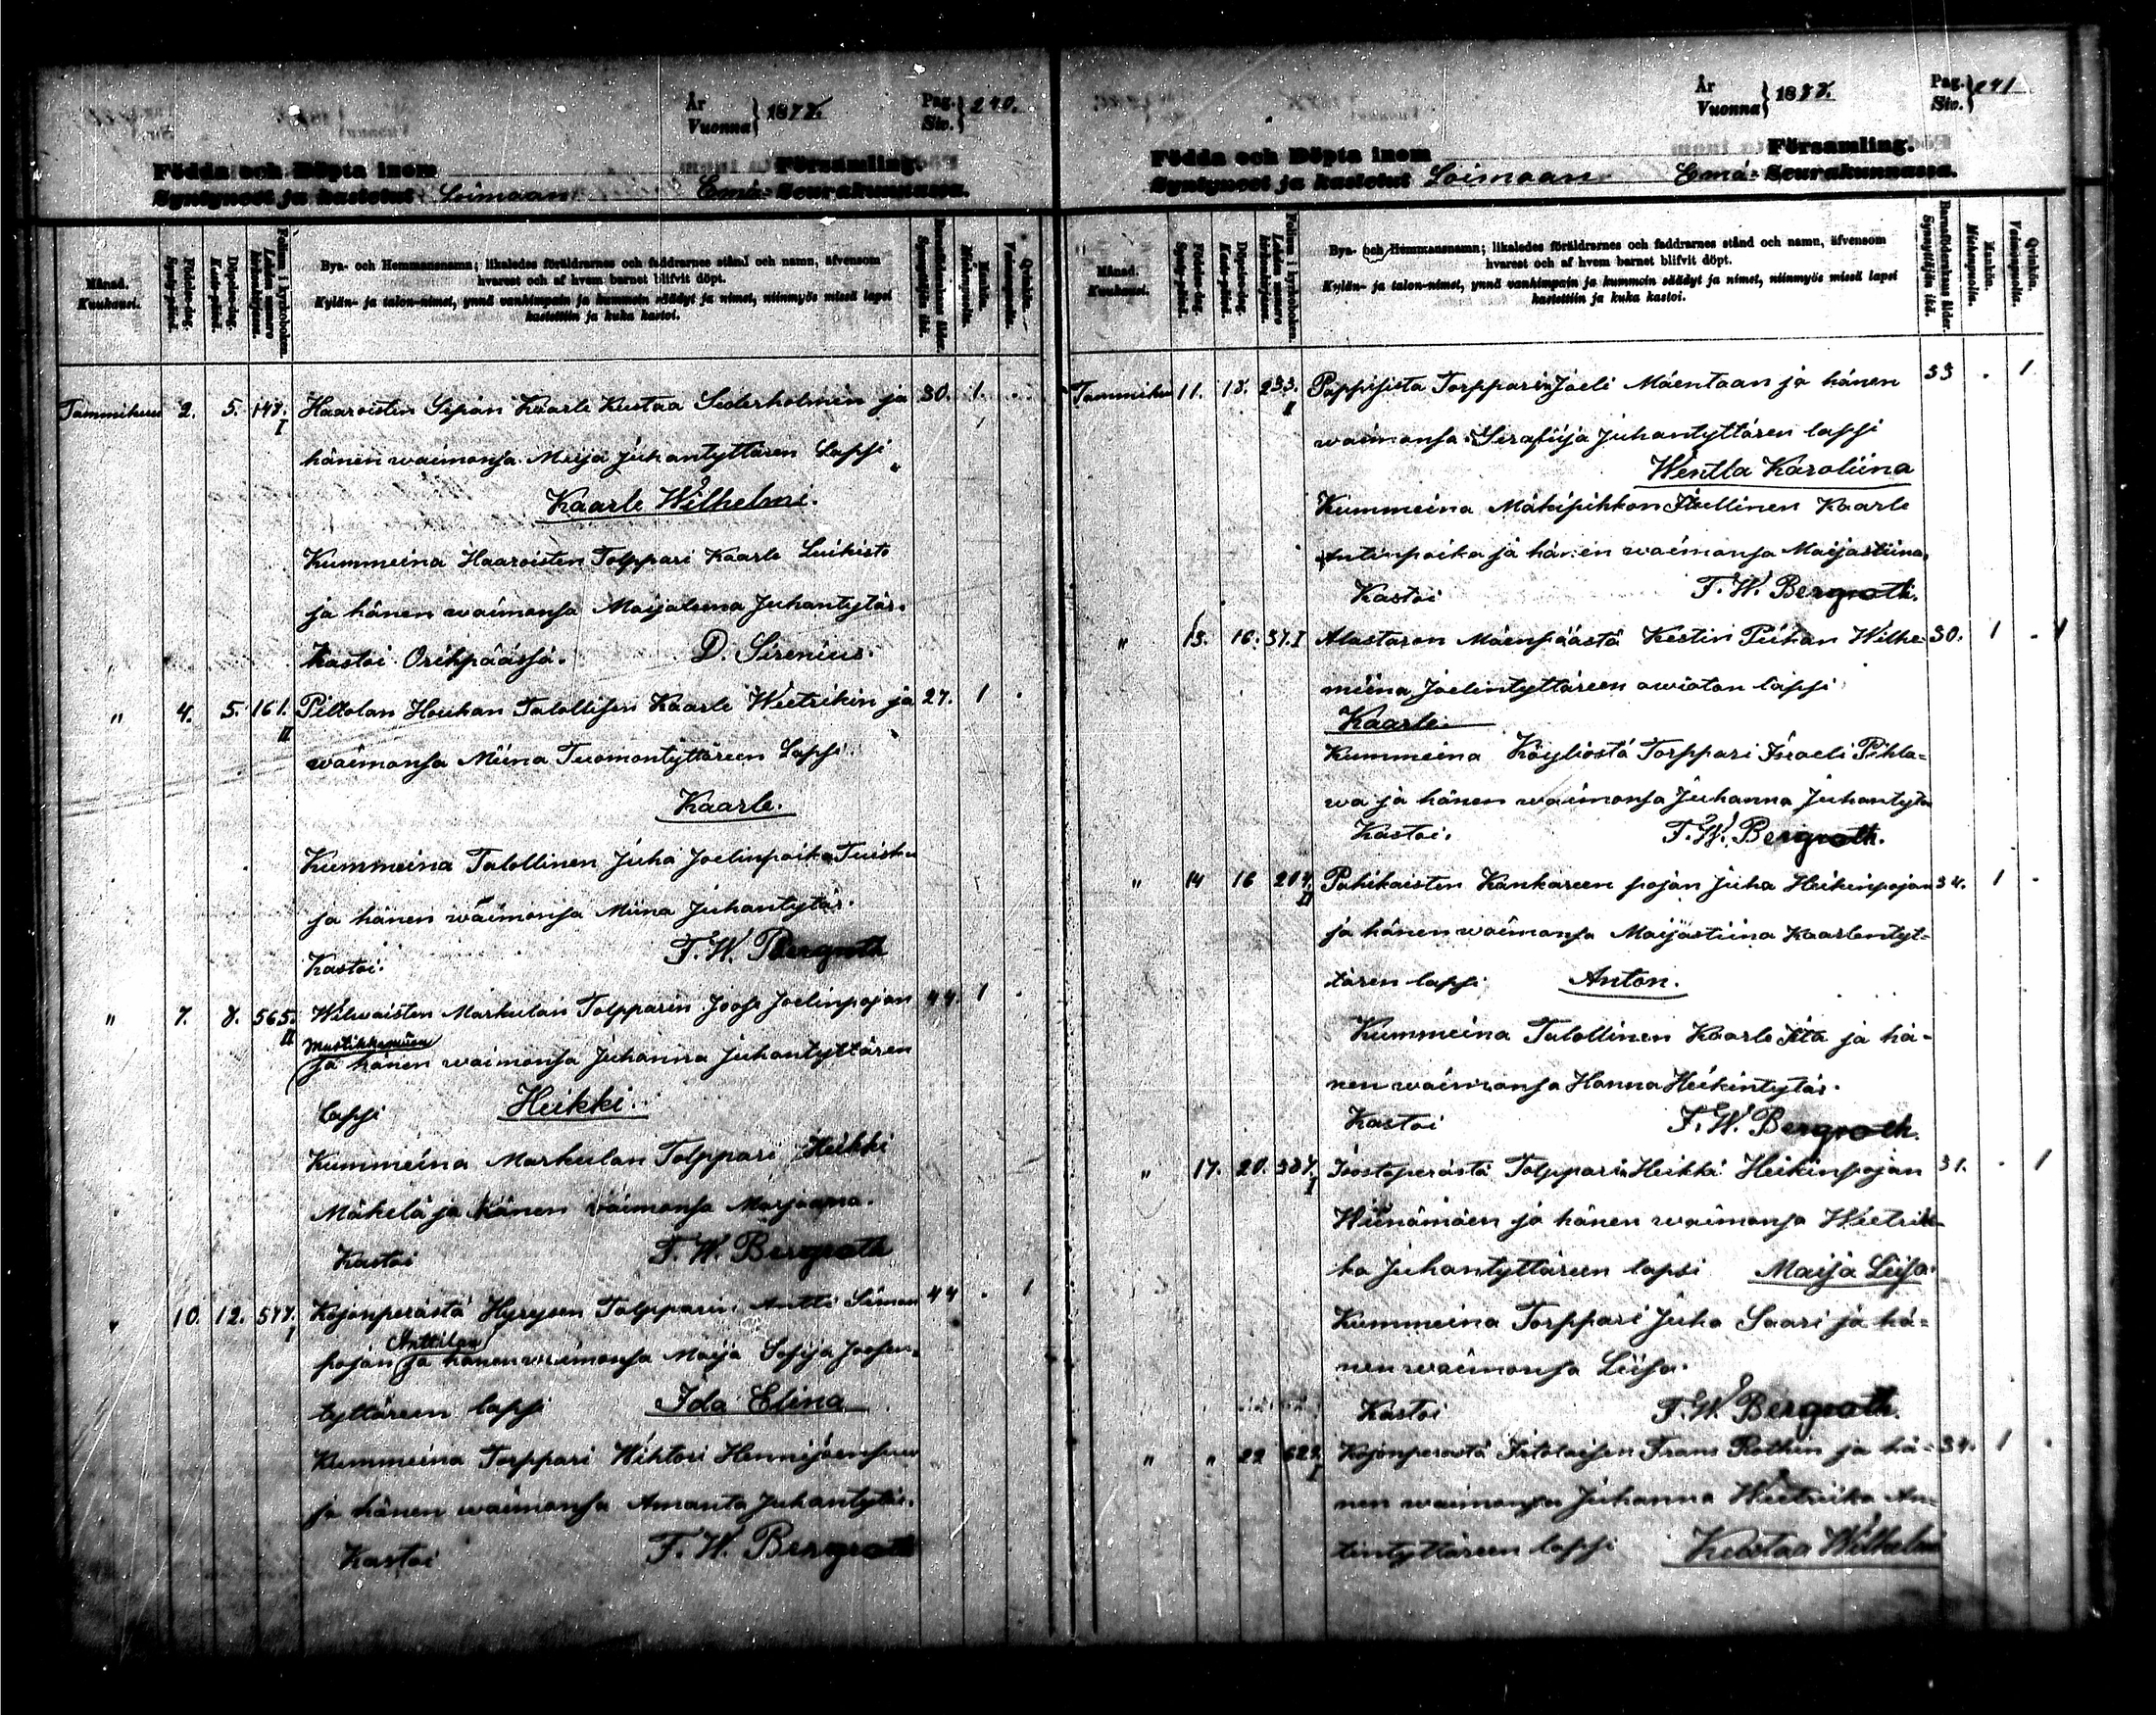 År
Vuonna } 1878.
Pag.
Siv. } 240.
Födda och Döpta inom Församling.
Syntyneet ja kastetut Loimaan Emä- Seurakunnassa.
Månad.
Kuukausi.
Födelse-dag.
Synty-päivä.
Döpelse-dag.
Kaste-päivä.
Folium i kyrkoboken.
Lehden numero kirkonkirjassa.
Bya- och Hemmansnamn; likaledes föräldrarnes och faddrarnes stånd och namn, äfvensom
hvarest och af hvem barnet blifvit döpt.
Kylän- ja talon-nimet, ynnä vanhimpain ja kummein säädyt ja nimet, niinmyös missä lapsi
kastettiin ja kuka kastoi.
Barnaföderskans ålder.
Synnyttäjän ikä.
Mankön.
Miehenpuolia.
Qvinkön.
Vaimonpuolia.
Tammikuu 2. 5. 148. I Haaroisten Sepän Kaarle Kustaa Sederholmin ja 30. 1.
hänen waimonsa Maija Juhantyttären Lapsi
Kaarle Wilhelmi.
Kummeina Haaroisten Tolppari Kaarle Luikisto
ja hänen waimonsa Maijaleena Juhantytär.
Kastoi Orihpäässä. D. Sirenius.
" 4. 5. 161. II Piltolan Houhan Talollisen Kaarle Wietrikin ja 27. 1
waimonsa Miina Tuomontyttäreen Lapsi.
Kaarle.
Kummeina Talollinen Juha Joelinpoika Tuisku
ja hänen waimonsa Miina Juhantytär.
Kastoi. F. W. Bergroth
" 7. 8. 565. II Wilwaisten Markulan Tolpparin Joose Joelinpojan 44. 1
Mustikkamäen
ja hänen waimonsa Juhanna Juhantyttären
lapsi Heikki.
Kummeina Markulan Tolppari Heikki
Mäkelä ja hänen waimonsa Marjaana.
Kastoi F. W. Bergroth
" 10. 12. 577. I Kojonperästä Hyrysen Tolpparin Antti Simon 44 . 1
Anttilan
pojan ja hänen waimonsa Maija Sofija Joosen-
tyttäreen lapsi Ida Elina
Kummeina Torppari Wihtori Hennijoensuu
ja hänen waimonsa Amanta Juhantytär.
Kastoi F. W. Bergroth
År
Vuonna } 1878.
Pag.
Siv. } 241
Födda och Döpta inom Församling.
Syntyneet ja kastetut Loimaan Emä- Seurakunnassa.
Månad.
Kuukausi.
Födelse-dag.
Synty-päivä.
Döpelse-dag.
Kaste-päivä.
Folium i kyrkoboken.
Lehden numero kirkonkirjassa.
Bya- och Hemmansnamn; likaledes föräldrarnes och faddrarnes stånd och namn, äfvensom
hvarest och af hvem barnet blifvit döpt.
Kylän- ja talon-nimet, ynnä vanhimpain ja kummein säädyt ja nimet, niinmyös missä lapsi
kastettiin ja kuka kastoi.
Barnaföderskans ålder.
Synnyttäjän ikä.
Mankön.
Miehenpuolia.
Qvinkön.
Vaimonpuolia.
Tammikuu 11. 18. 233. I Pappisista Torpparin Joeli Mäentaan ja hänen 33 . 1
waimonsa Serafiija Juhantyttären lapsi
Wentla Karoliina
Kummeina Mäkipihkon Itsellinen Kaarle
Antinpoika ja hänen waimonsa Maijastiina,
Kastoi F. W. Bergroth.
" 13. 16. 37. I Alastaron Mäenpäästä Kestin Piihan Wilhe- 30. 1 .
miina Joelintyttäreen awioton lapsi
Kaarle.
Kummeina Köyliöstä Torppari Israeli Pihla-
wa ja hänen waimonsa Juhanna Juhantytä
Kastoi. F. W. Bergroth.
" 14 16 207. II Pahikaisten Kankareen pojan Juha Heikinpojan 34. 1 .
ja hänen waimonsa Maijastiina Kaarlentyt-
tären lapsi Anton.
Kummeina Talollinen Kaarle Ita ja hä-
nen waimonsa Hanna Heikintytär.
Kastoi F. W. Bergroth.
" 17. 20. 387. I Joostaperästä Tolpparin Heikki Heikinpojan 31. . 1
Wiinämäen ja hänen waimonsa Wietrii-
ka Juhantyttäreen lapsi Maija Liisa.
Kummeina Torppari Juha Saari ja hä-
nen waimonsa Liisa.
Kastoi F. W. Bergroth.
" " 22 627. I Kojonperästä Itsolaisen Frans Rothin ja hä- 34. 1 .
nen waimonsa Juhanna Wietriika An-
tintyttäreen lapsi Kustaa Wilhelmi